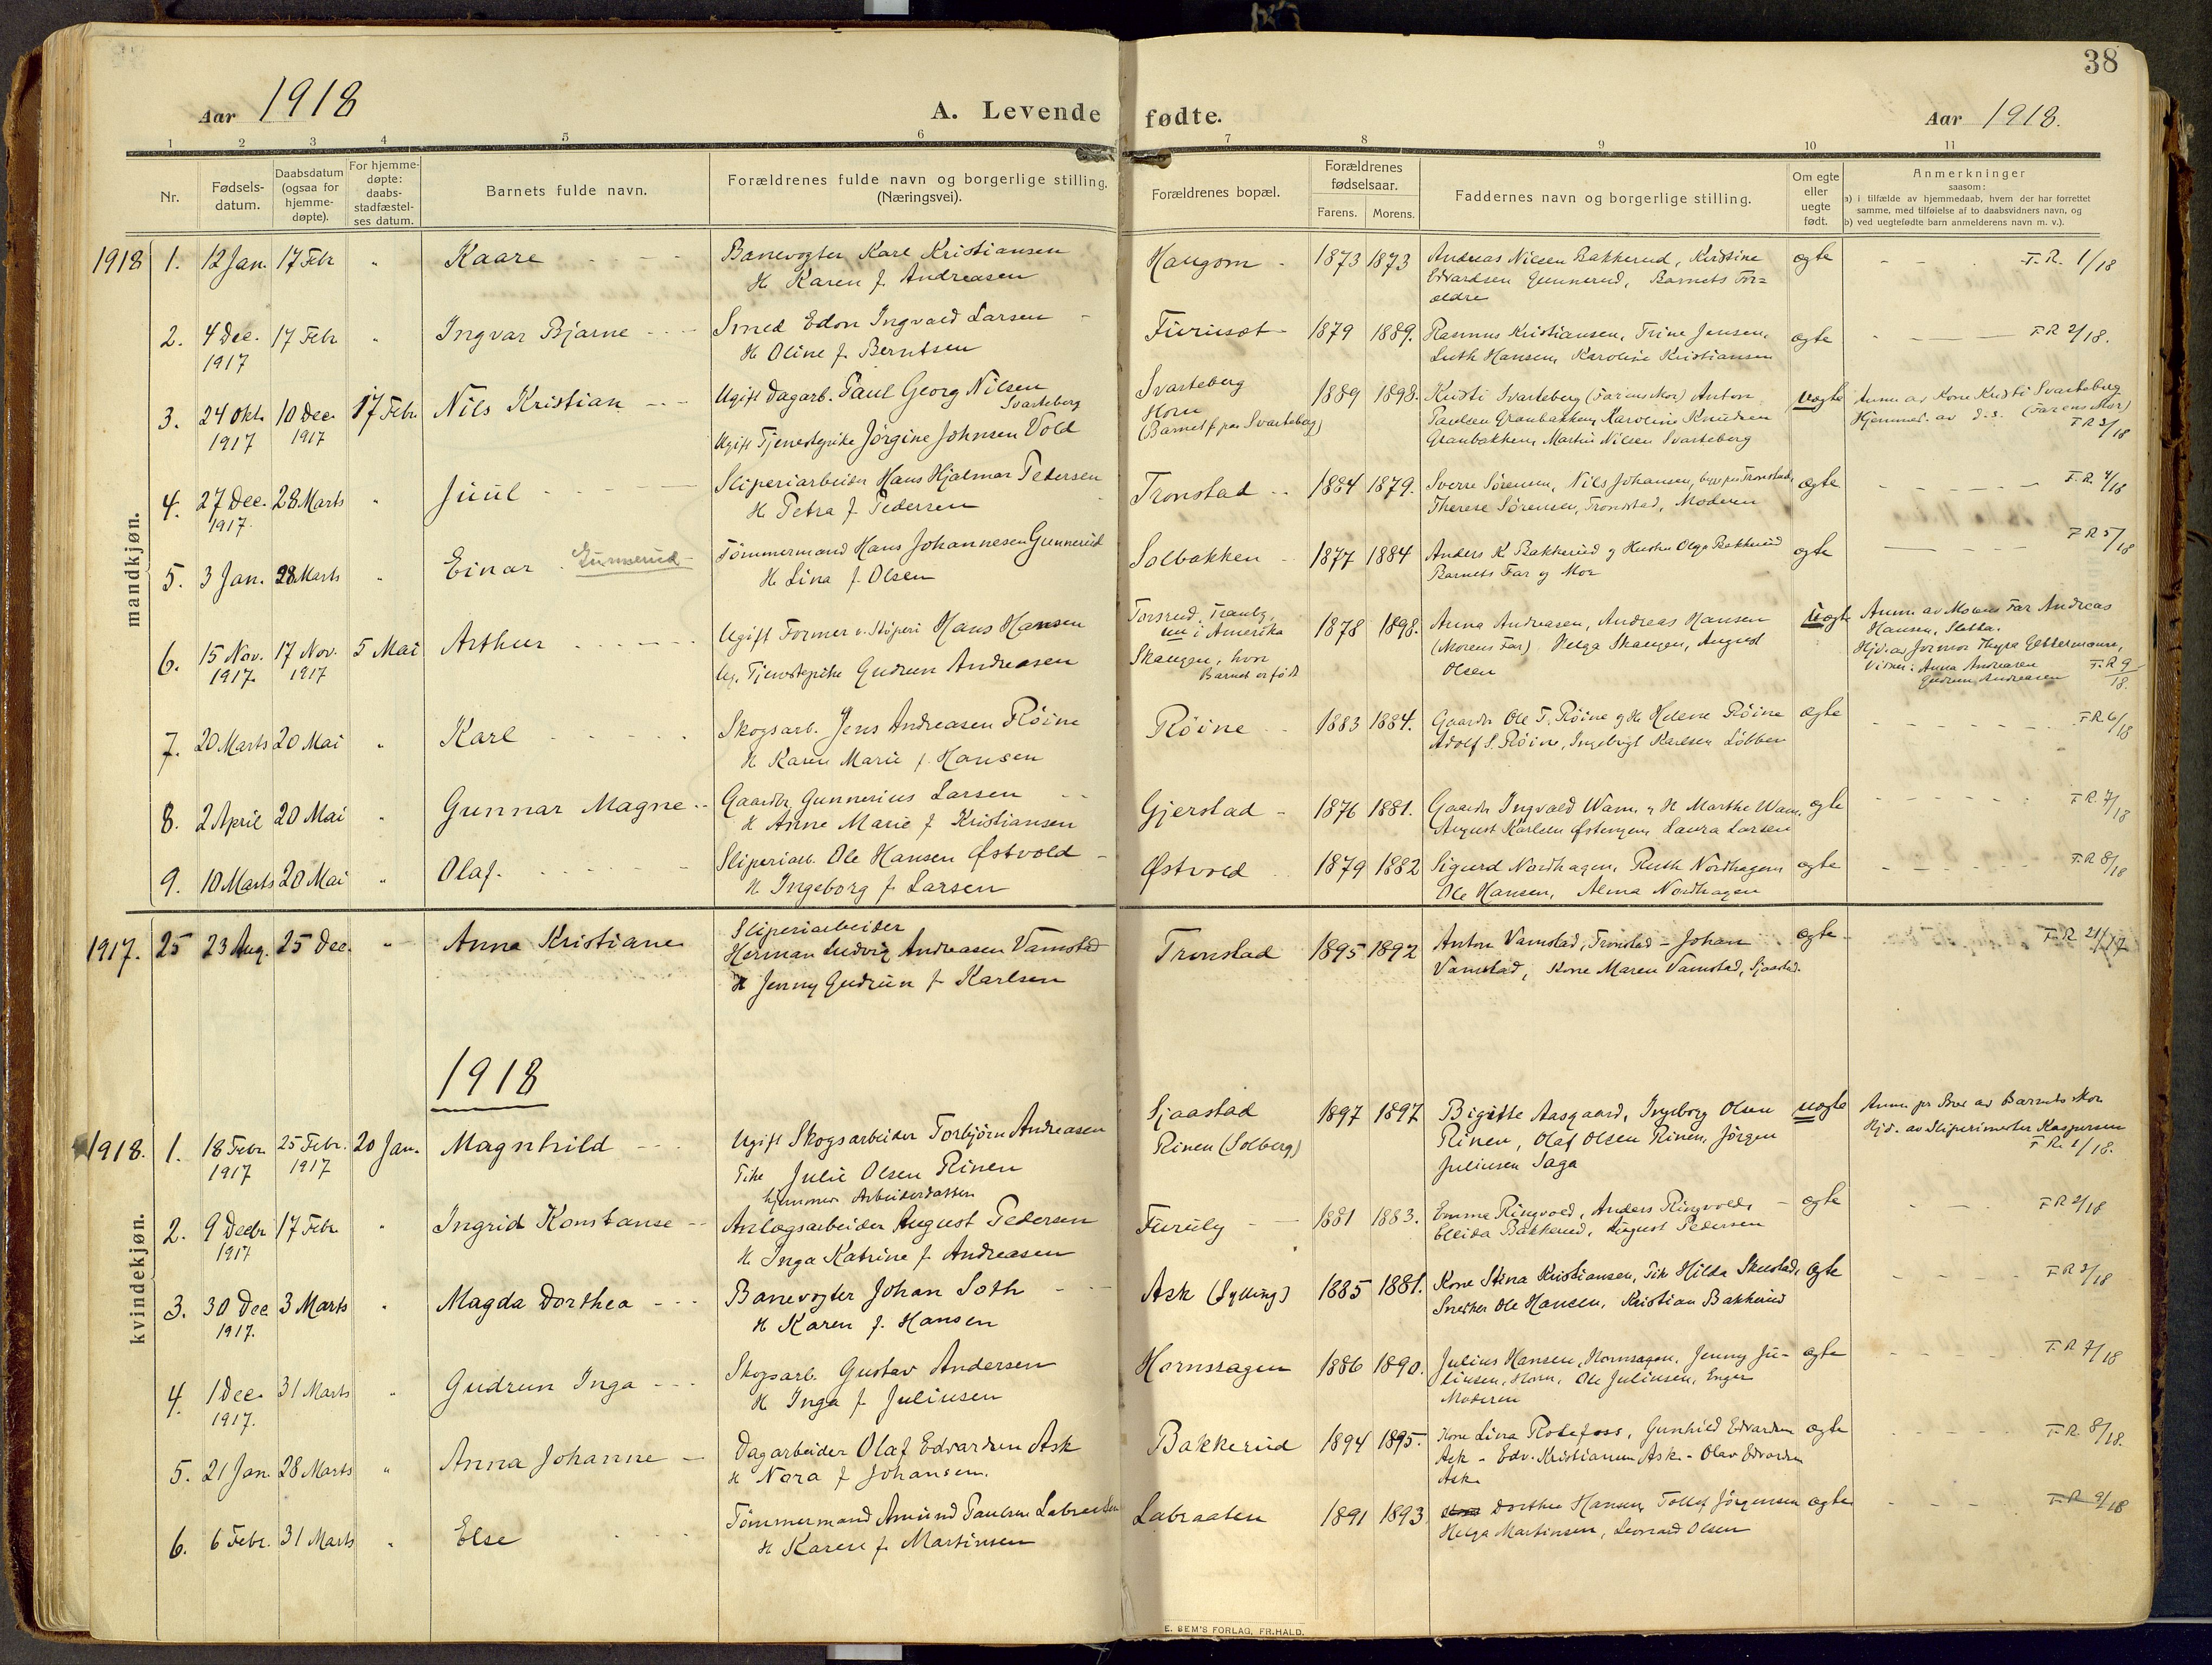 38
Aar 1918 A. Levende fødte. Aar 1918.
1 2 3 4 5 6 7 8 9 10 11
Nr. Fødsels-datum. Daabsdatum (ogsaa for hjemme-døpte). For hjemme-døpte: daabs-stadfæstel-ses datum. Barnets fulde navn. Forældrenes fulde navn og borgerlige stilling. (Næringsvei). Forældrenes bopæl. Forældrenes fødselsaar. Farens. Morens. Faddernes navn og borgerlige stilling. Om egte eller uegte født. Anmerkninger saasom:
a) i tilfælde av hjemmedaab, hvem der har forrettet samme, med tilføielse af to daabsvidners navn, og
b) ved uegtefødte barn anmelderens navn m. v.).
mandkjøn.
1918 1. 12 Jan. 17 Febr " Kaare Banevogter Karl Kristiansen Haugom 1873 1873 Andreas Nilsen Bakkerud, Kristine egte F.R. 1/18
H Karen f. Andreasen Edvardsen Gunnerud, Barnets For=
ældre
2. 4 Dec. 17 Febr " Ingvar Bjarne Smed Edon Ingvald Larsen Furuset 1879 1889. Rasmus Kristiansen, Trine Jensen, egte F.R 2/18.
1917 H Oline f. Berntsen Luth Hansen, Karoline Kristiansen
3. 24 Okt. 10 Dec. 17 Febr Nils Kristian Ugift Dagarb. Paul Georg Nilsen Svarteberg Svarteberg 1889 1898. Kristi Svarteberg (Farens Mor) Anton uegte Anm. av Kone Kristi Svarteberg
1917 1917 Ugift Tjenestepike Jørgine Johnsen Vold Horn Paulsen Granbakken, Karoline Knudsen Hjemmed. av d.s. (Farens Mor)
(Barnet f. paa Svarteberg) Granbakken, Martin Nilsen Svarteberg F R 3/18
4. 27 Dec. 28 Marts " Juul Sliperiarbeider Hans Hjalmar Pedersen Tronstad 1884 1879. Sverre Sørensen, Nils Johansen, begge paa Tronstad, egte F.R. 4/18
1917. H Petra f Pedersen Therese Sørensen, Tronstad, Moderen
5. 3 Jan. 28 Marts " Einar Gunnerud Tømmermand Hans Johannesen Gunnerud Solbakken 1877 1884 Anders K Bakkerud og Hustru Olga Bakkerud egte F R 5/18
H Lina f Olsen Barnets Far og Mor
6. 15 Nov. 17 Nov. 5 Mai Arthur Ugift Former v. Støperi Hans Hansen Torsrud, Tranby, 1878 1898. Anna Andreasen, Andreas Hansen uegte Anm. av Morens Far Andreas
1917. 1917 Ug. Tjenestepike Gudrun Andreasen nu i Amerika (Morens Far) Helga Skaugen, August Hansen, Sletta.
Skaugen, hvor Olsen Hjd. av Jormor Thyra Gettermann,
Barnet er født Vidner: Anna Andreasen F.R 9/18.
Gudrun Andreasen
7. 20 Marts 20 Mai " Karl Skogsarb. Jens Andreasen Røine Røine 1883 1884. Gaardbr Ole T. Røine og H Helene Røine egte F R 6/18
H Karen Marie f. Hansen Adolf S. Røine, Ingebrigt Karlsen Løbben
8. 2 April 20 Mai " Gunnar Magne Gaardbr. Gunnerius Larsen Gjerstad 1876 1881. Gaardbr Ingvald Wam og H Marthe Wam, egte F.R. 7/18
H Anne Marie f Kristiansen August Karlsen Østengen, Laura Larsen
9. 10 Marts 20 Mai " Olaf. Sliperiarb. Ole Hansen Østvold Østvold 1879 1882 Sigurd Nordhagen, Ruth Nordhagen egte F.R 8/18
H Ingeborg f Larsen Ole Hansen, Alma Nordhagen
1917. 25 23 Aug. 25 Dec. " Anna Kristiane Sliperiarbeider Tronstad 1895 1892 Anton Vamstad, Tronstad - Johan egte F R 21/17
Herman Ludvig Andreasen Vamstad Vamstad, Kone Maren Vamstad, Sjaastad.
H Jenny Gudrun f Karlsen
1918
kvindekjøn.
1918. 1. 18 Febr 25 Febr. 20 Jan. Magnhild Ugift Skogsarbeider Torbjørn Andreasen Sjaastad 1897 1897 Bigitte Aasgaard, Ingeborg Olsen uegte Anm. pr Brev av Barnets Mor
1917 1917 Pike Julie Olsen Rinen Rinen (Solberg) Rinen, Olaf Olsen Rinen, Jørgen Hjd. av Sliperimester Kaspersen
hjemmev. Arbeiderdatter Juliusen Saga F R. 1/18.
2. 9 Decbr 17 Febr " Ingrid Konstanse Anlægsarbeider August Pedersen Furuly 1881 1883. Emma Ringvold, Anders Ringvold, egte F R 2/18
1917 H. Inga Katrine f. Andreasen Bakkerud, August Pedersen
3. 30 Dec 3 Marts " Magda Dorthea Banevogter Johan Soth Ask (Sylling) 1885 1881. Kone Stina Kristiansen, Pike Hilda Skustad, egte F R 3/18
1917. H Karen f. Hansen Snedker Ole Hansen, Kristian Bakkerud
4. 1 Dec. 31 Marts " Gudrun Inga Skogsarb. Gustav Andersen Hornssagen 1886 1890. Julius Hansen, Hornsagen, Jenny Ju- egte F R 7/18
1917. H Inga f Juliusen liusen, Horn, Ole Juliusen, Enger
Moderen
5. 21 Jan. 28 Marts " Anna Johanne Dagarbeider Olaf Edvardsen Ask Bakkerud 1894 1895. Kone Lina Rodefoss, Gunhild Edvardsen egte F R. 8/18.
H Nora f Johansen. Ask - Edv. Kristiansen Ask - Olav Edvardsen
Ask
6. 6 Febr. 31 Marts " Else Tømmermand Amund Paulsen Labraaten Labraaten 1891 1893 Dorthea Hansen, Tollef Jørgensen egte F R 9/18
H Karen f. Martinsen Helga Martinsen, Leonard Olsen
E. SEM'S FORLAG, FR.HALD.